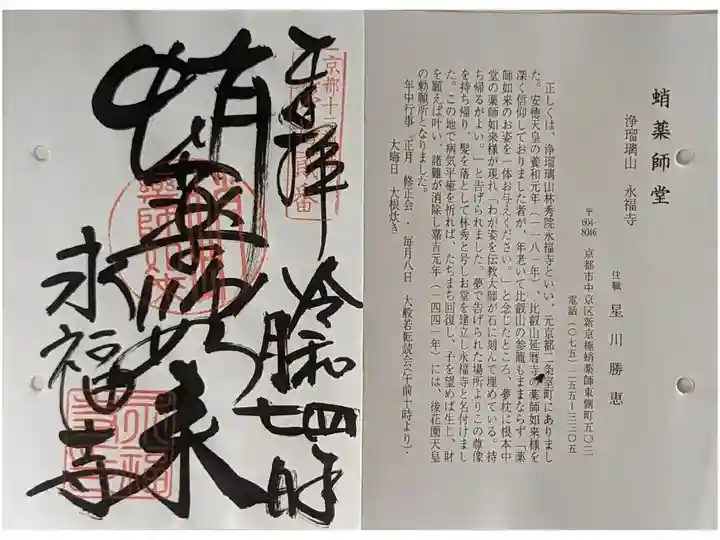 蛸薬師堂
浄瑠璃山 永福寺
住職 星川勝恵
〒604-8046 京都市中京区新京極蛸薬師東側町五〇二
電話(〇七五)二五五ー三三〇五
正しくは、浄瑠璃山林秀院永福寺といい、元京都二条室町にありまし
た。安徳天皇の養和元年(一一八一年)、比叡山延暦寺の薬師如来様を
深く信仰しておりました者が、年老いて比叡山の参籠もままならず「薬
師如来のお姿を一体お与えください。」と念じたところ、夢枕に根本中
堂の薬師如来様が現れ「わが姿を伝教大師が石に刻んで埋めている。持
ち帰るがよい。」と告げられました。夢で告げられた場所よりこの尊像
を持ち帰り、髪を落として林秀と号しお堂を建立し永福寺と名付けまし
た。この地で病気平癒を祈れば、たちまち回復し、子を望めば生じ、財
を願えば叶い、諸難が消除し嘉吉元年(一四四一年)には、後花園天皇
の勅願所となりました。
年中行事 正月 修正会・毎月八日 大般若転読会(午前十時より)・
大晦日 大根炊き
京都十二
奉拝
令和四年
蛸薬師如来
永福寺